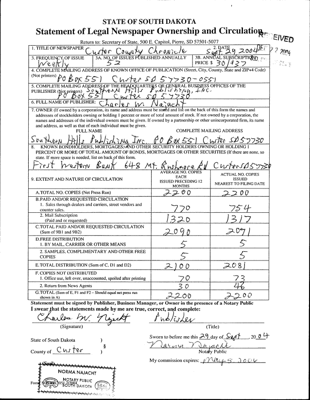 STATE OF SOUTH DAKOTA
Statement of Legal Newspaper Ownership and Circulation
EIVED
Return to: Secretary of State, 500 E. Capitol, Pierre, SD 57501-5077
1. TITLE OF NEWSPAPER Custer County Chronicle 2. DATE Sept 29, 2004
3. FREQUENCY OF ISSUE Weekly 3A. NO. OF ISSUES PUBLISHED ANNUALLY 52 3B. ANNUAL SUBSCRIPTION PRICE $
4. COMPLETE MAILING ADDRESS OF KNOWN OFFICE OF PUBLICATION (Street, City, County, State and ZIP+4 Code)
(Not printers) PO Box 551 Custer SD 57730-0551
5. COMPLETE MAILING ADDRESS OF THE HEADQUARTERS OR GENERAL BUSINESS OFFICES OF THE
PUBLISHER (Not printers) Southern Hills Publishing Inc.
PO Box 551 Custer SD 57730
6. FULL NAME OF PUBLISHER: Charles W. Najacht
7. OWNER (If owned by a corporation, its name and address must be stated and also immediately below the names and
addresses of stockholders owning or holding 1 percent or more of total amount of stock. If not owned by a corporation, the
names and addresses of the individual owners must be given. If owned by a partnership or other unincorporated firm, its name
and address, as well as that of each individual must be given.
FULL NAME COMPLETE MAILING ADDRESS
Southern Hills Publishing Inc. PO Box 551 Custer SD 57730
8. KNOWN BONDHOLDERS, MORTGAGEES AND OTHER SECURITY HOLDERS OWNING OR HOLDING 1
PERCENT OR MORE OF TOTAL AMOUNT OF BONDS, MORTGAGES OR OTHER SECURITIES (If there are none, so
state. If more space is needed, list on back of this form.
First Western Bank 648 Mt. Rushmore Rd Custer SD 57730
9. EXTENT AND NATURE OF CIRCULATION
AVERAGE NO. COPIES EACH ISSUED PRECEDING 12 MONTHS
ACTUAL NO. COPIES ISSUED NEAREST TO FILING DATE
A. TOTAL NO. COPIES (Net Press Run) 2200 2200
B. PAID AND/OR REQUESTED CIRCULATION
1. Sales through dealers and carriers, street vendors and counter sales. 770 754
2. Mail Subscription (Paid and/or requested) 1320 1317
C. TOTAL PAID AND/OR REQUESTED CIRCULATION (Sum of 9B1 and 9B2) 2090 2071
D. FREE DISTRIBUTION
1. BY MAIL, CARRIER OR OTHER MEANS 5 5
2. SAMPLES, COMPLIMENTARY AND OTHER FREE COPIES 5 5
E. TOTAL DISTRIBUTION (Sum of C, D1 and D2) 2100 2081
F. COPIES NOT DISTRIBUTED
1. Office use, left over, unaccounted, spoiled after printing 70 73
2. Return from News Agents 30 46
G. TOTAL (Sum of E, F1 and F2 - Should equal net press run shown in A) 2200 2200
Statement must be signed by Publisher, Business Manager, or Owner in the presence of a Notary Public
I swear that the statements made by me are true, correct, and complete:
Charles W. Najacht Publisher
(Signature) (Title)
State of South Dakota )
County of Custer )
Sworn to before me this 29 day of Sept 2004
Norma Najacht
Notary Public
My commission expires:
NORMA NAJACHT
NOTARY PUBLIC